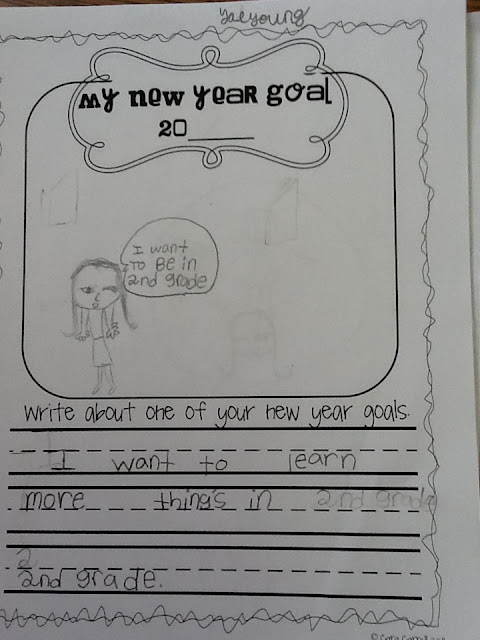 Yaeyoung
My New Year Goal
20____
I want
To Be in
2nd grade
Write about one of your new year goals.
I want to learn
more things in 2nd grade
2
2nd grade.